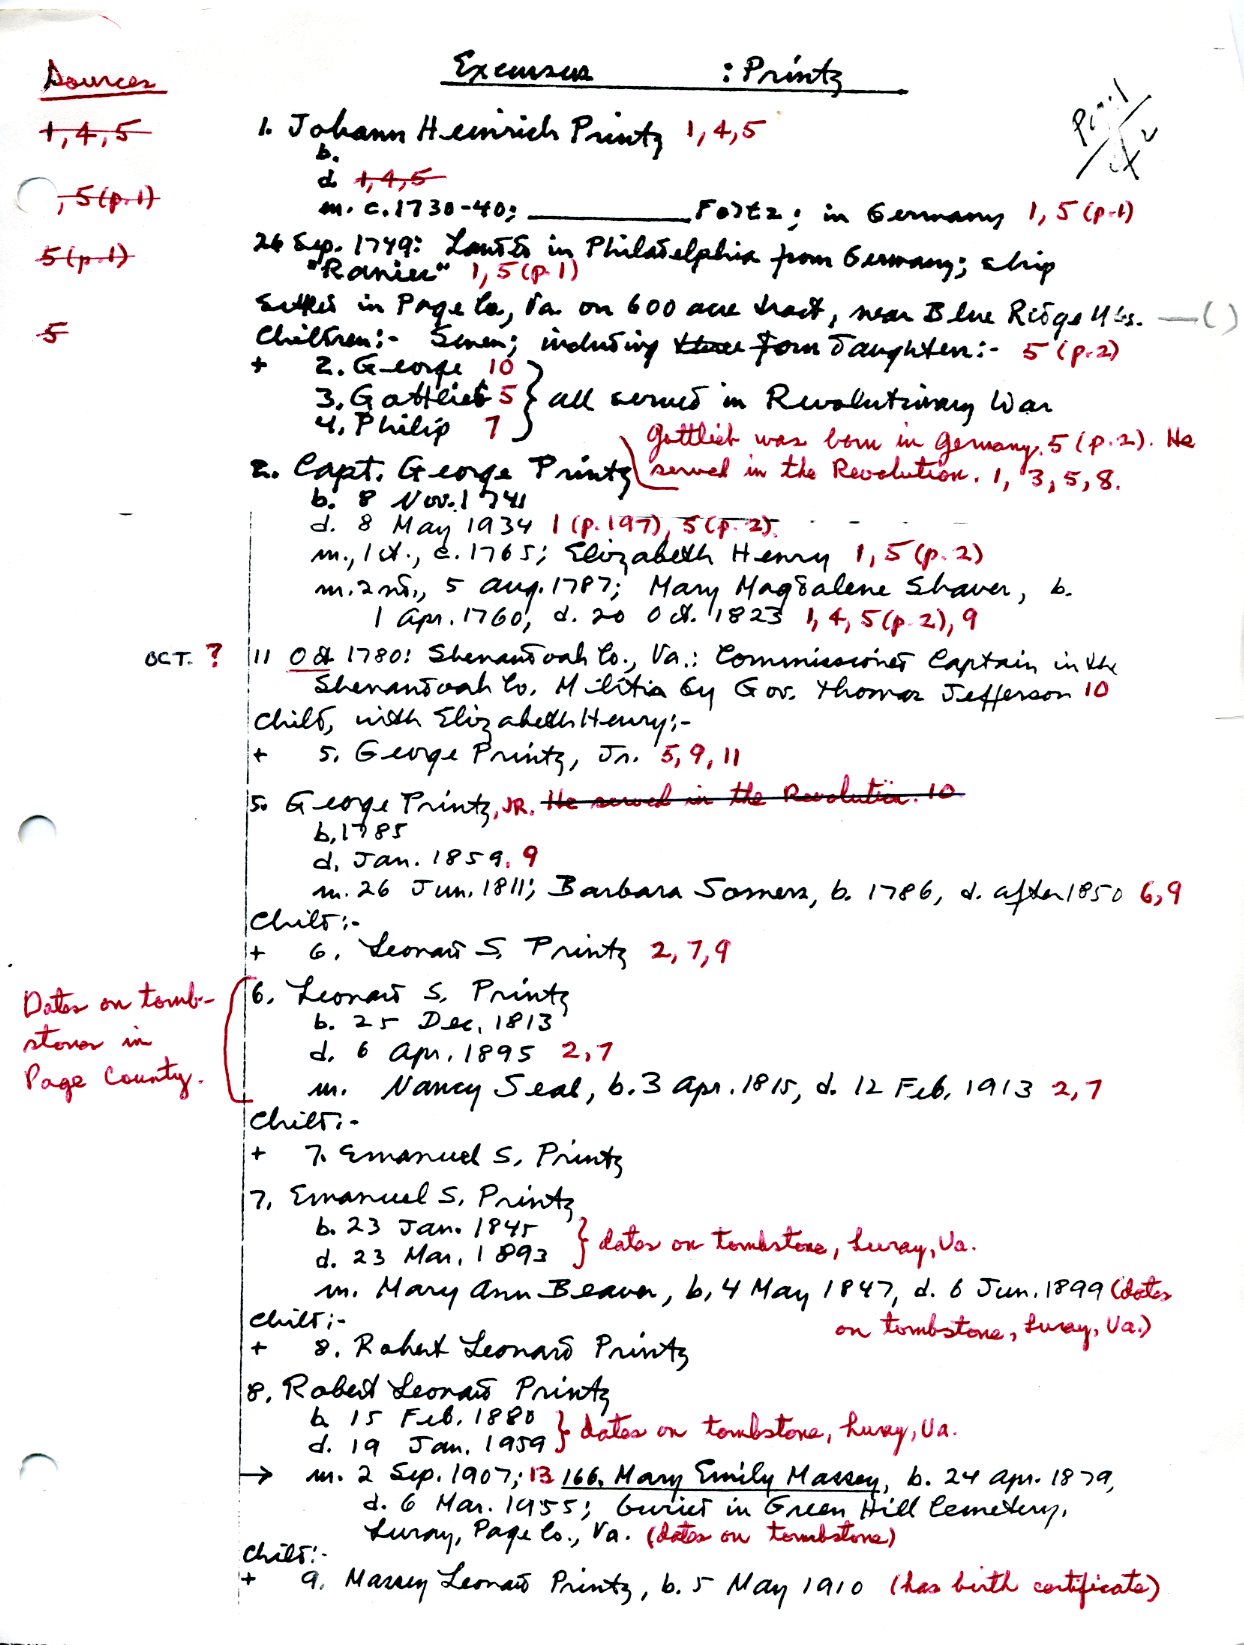 Sources
Excursus : Printz
1, 4, 5
1. Johann Heinrich Printz 1, 4, 5
b.
d. 1, 4, 5
, 5 (p. 1)
m. c. 1730-40; ________ Foltz; in Germany 1, 5 (p. 1)
5 (p. 1)
26 Sep. 1749: Landed in Philadelphia from Germany; ship
"Ranier" 1, 5 (p. 1)
Settled in Page Co., Va. on 600 acre tract, near Blue Ridge Mts. — ( )
5
Children:- Seven; including three four daughters:- 5 (p. 2)
+ 2. George 10
3. Gottlieb 5 } all served in Revolutionary War
4. Philip 7
Gottlieb was born in Germany. 5 (p. 2). He
served in the Revolution. 1, 3, 5, 8.
2. Capt. George Printz
b. 8 Nov. 1741
d. 8 May 1934 1 (p. 197), 5 (p. 2).
m., 1st., c. 1765; Elizabeth Henry 1, 5 (p. 2)
m. 2nd., 5 Aug. 1787; Mary Magdalene Shaver, b.
1 Apr. 1760, d. 20 Oct. 1823 1, 4, 5 (p. 2), 9
OCT. ? 11 Oct 1780: Shenandoah Co., Va.: Commissioned Captain in the
Shenandoah Co. Militia by Gov. Thomas Jefferson 10
Child, with Elizabeth Henry:-
+ 5. George Printz, Jr. 5, 9, 11
5. George Printz, JR. He served in the Revolution. 10
b. 1785
d. Jan. 1859. 9
m. 26 Jun. 1811; Barbara Somers, b. 1786, d. after 1850 6, 9
Child:-
+ 6. Leonard S. Printz 2, 7, 9
Dates on tomb-
stones in
Page County.
6. Leonard S. Printz
b. 25 Dec. 1813
d. 6 Apr. 1895 2, 7
m. Nancy Seal, b. 3 Apr. 1815, d. 12 Feb. 1913 2, 7
Child:-
+ 7. Emanuel S. Printz
7. Emanuel S. Printz
b. 23 Jan. 1845
d. 23 Mar. 1893 } dates on tombstone, Luray, Va.
m. Mary Ann Beaver, b. 4 May 1847, d. 6 Jun. 1899 (dates
on tombstone, Luray, Va.)
Child:-
+ 8. Robert Leonard Printz
8. Robert Leonard Printz
b. 15 Feb. 1880
d. 19 Jan. 1959 } dates on tombstone, Luray, Va.
→ m. 2 Sep. 1907; 13 166. Mary Emily Massey, b. 24 Apr. 1879,
d. 6 Mar. 1955; buried in Green Hill Cemetery,
Luray, Page Co., Va. (dates on tombstone)
Child:-
+ 9. Massey Leonard Printz, b. 5 May 1910 (has birth certificate)